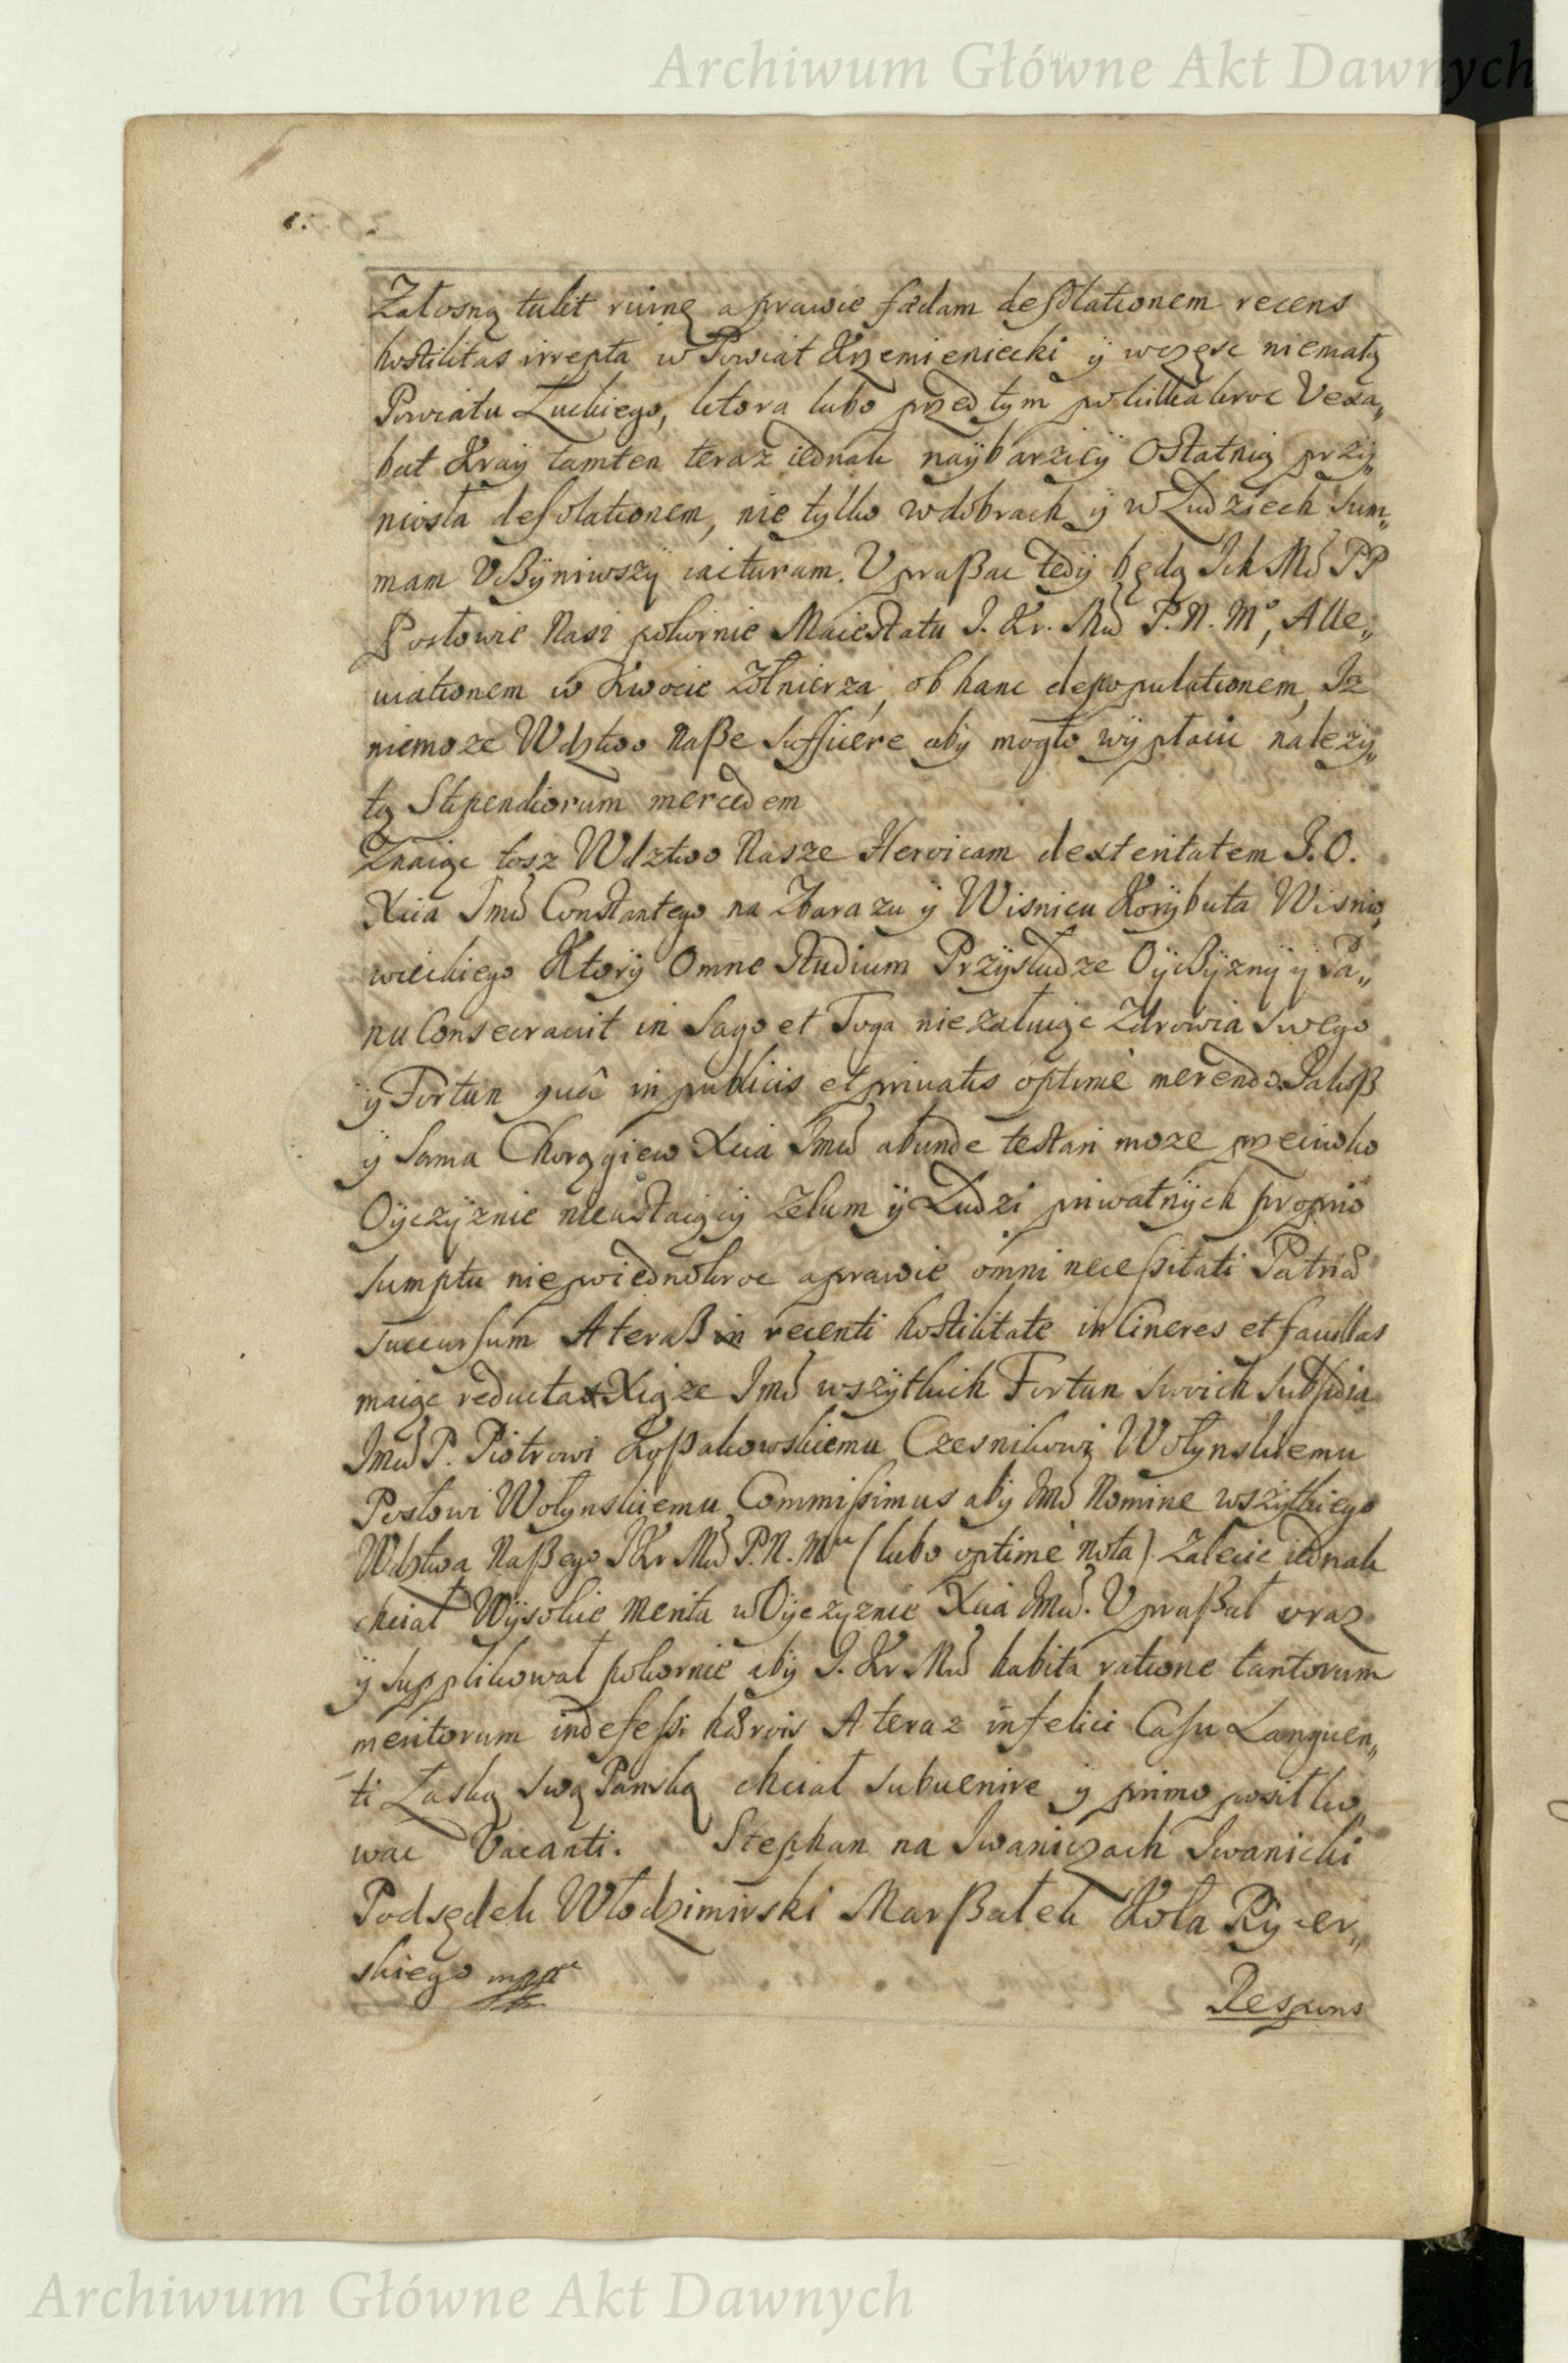 Archiwum Główne Akt Dawnych
Załosną tulit ruinę a prawie fædam desolationem recens
hostilitas irrepta w Powiat Krzemieniecki ÿ wczęsc niemałą
Powiatu Łuckiego, ktora lubo przed tym po kilkakroc Vexa„
bat Kraÿ tamten teraz iednak naÿbarzieÿ Ostatnią przÿ„
niosła desolationem, nie tylko w dobrach ÿ w Ludziech Sum„
mam VcẞÿniwszŸ iacturam. Vpraßac tedÿ będą Ich Mć PP
Posłowie Nasi pokornie Maiestatu J. Kr. Mći P. N. Mº, Alle„
uiationem w Kwocie Zołnierza, ob hanc depopulationem, Iz
niemoze Wdztwo Naße Sufficere abÿ mogło wÿpłacic nalezÿ„
tą Stipendiorum mercedem
Znaiąc tosz Wdztwo Nasze Heroicam dexteritatem J. O.
Xcia Jmći Constantego na Zbarazu ÿ Wisnicu Korÿbuta Wisnio„
wieckiego Ktorÿ Omne Studium Przÿsłudze Oÿcẞÿznÿ ÿ Pa„
nu Consecrauit in Sago et Toga niezałuiąc Zdrowia swego
ÿ Fortun quâ in publicis et priuatis optimè merendo. Jakoß
ÿ Sama Chorągiew Xcia Jmći abunde testari moze przeciwko
Oÿczÿznie nieustaiącÿ Zelum ÿ Ludzi priwatnÿch proprio
Sumptu niepoiednokroc aprawie omni necessitati Patriæ
Succursum A teraß in recenti hostilitate in Cineres et fauillas
maiąc reductas Xiąze Jmć wszÿtkich Fortun swoich Subsidia
Jmći P. Piotrowi Łoßakowskiemu Czesnikowi Wołynskiemu
Posłowi Wołynskiemu Commissimus abÿ Jmć Nomine wszÿtkiego
Wdztwa Naßego J Kr Mći P. N. Mu (lubo optimè nota) Zalecic iednak
chciał Wÿsokie Merita w Oÿczÿznie Xcia Jmći. Vpraßał oraz
ÿ Supplikował pokornie abÿ J. Kr. Mć habita ratione tantorum
meritorum indefessi hærois A teraz infelici Casu Languen„
ti Łaską swą Panską chciał subuenire ÿ primo positko„
wac Vacanti. Stephan na Iwaniczach Iwanicki
Podsędek Włodzimirski Marßałek Koła Rÿcer„
skiego mpp
Respons
Archiwum Główne Akt Dawnych